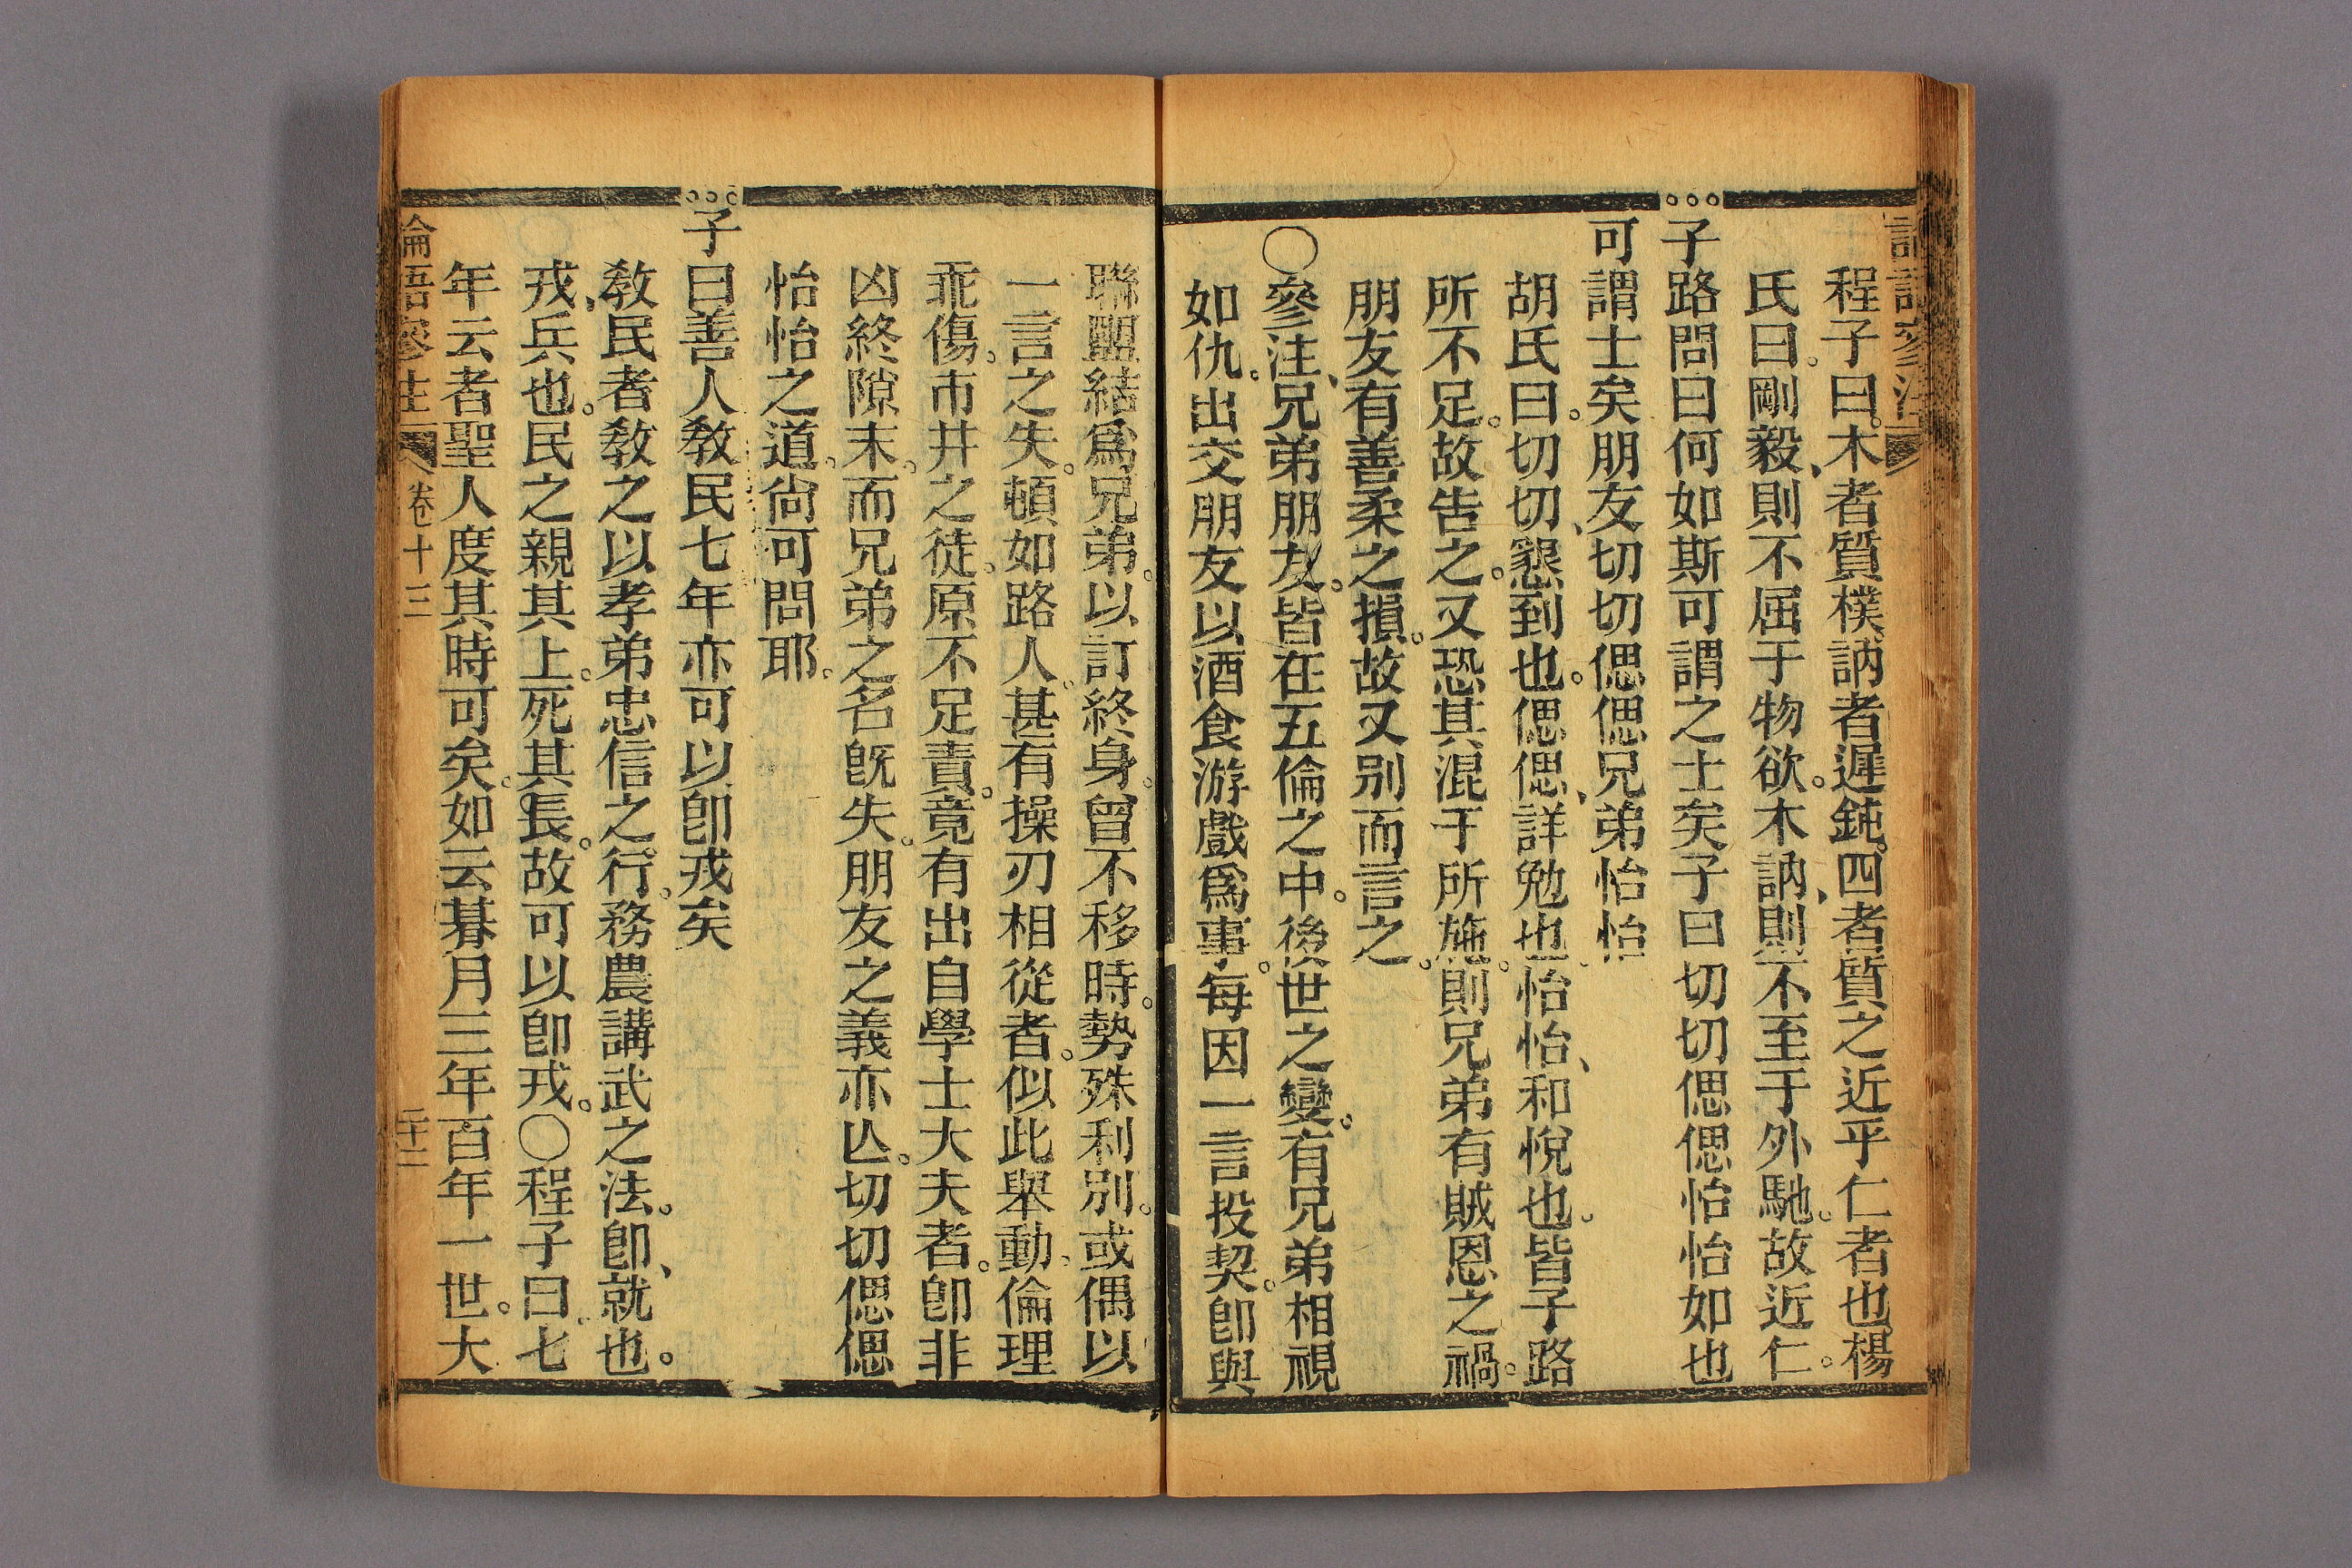 程子曰。木者質樸訥者遲鈍。四者質之近乎仁者也。楊
氏曰。剛毅、則不屈于物欲。木訥、則不至于外馳。故近仁。
子路問曰何如斯可謂之士矣子曰切切偲偲怡怡如也
可謂士矣朋友切切偲偲兄弟怡怡
胡氏曰。切切、懇到也。偲偲、詳勉也。怡怡、和悅也。皆子路
所不足。故告之。又恐其混于所施。則兄弟有賊恩之禍。
朋友有善柔之損。故又別而言之。
〇參注、兄弟朋友。皆在五倫之中。後世之變。有兄弟相視
如仇。出交朋友以酒食游戲爲事。每因一言投契。卽與
聯盟結爲兄弟。以訂終身。曾不移時。勢殊利別。或偶以
一言之失。頓如路人。甚有操刃相從者。似此舉動。倫理
乖傷。市井之徒。原不足責。竟有出自學士大夫者。卽非
凶終隙末。而兄弟之名旣失。朋友之義亦亾。切切偲偲
怡怡之道。尙可問耶。
子曰善人敎民七年亦可以卽戎矣
敎民者敎之以孝弟忠信之行。務農講武之法。卽、就也。
戎、兵也。民之親其上。死其長。故可以卽戎。〇程子曰。七
年云者聖人度其時可矣。如云朞月三年百年一世。大
論語參注 卷十三 二十二